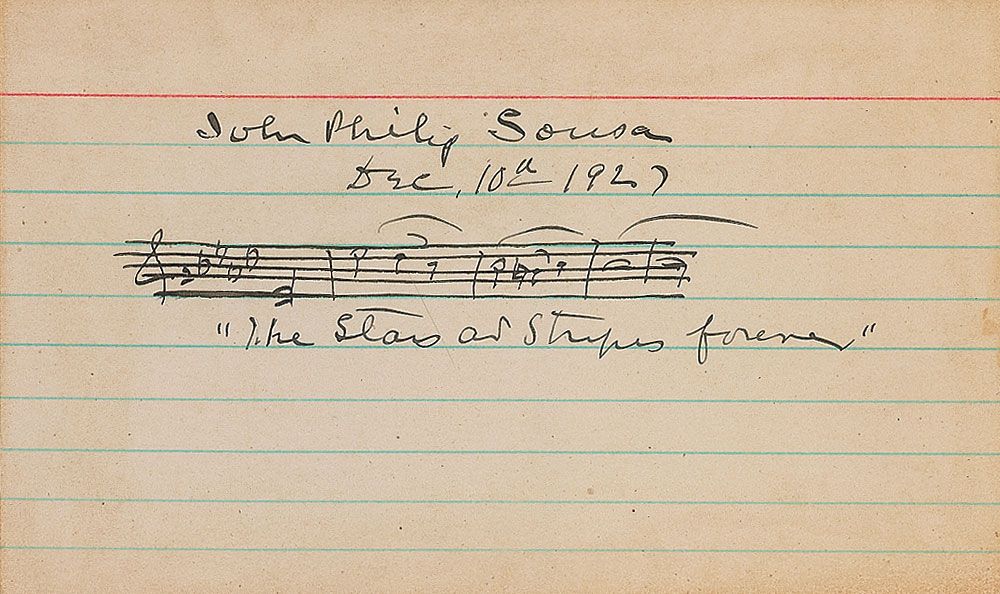 John Philip Sousa
Dec. 10th 1927
"The Stars and Stripes forever"